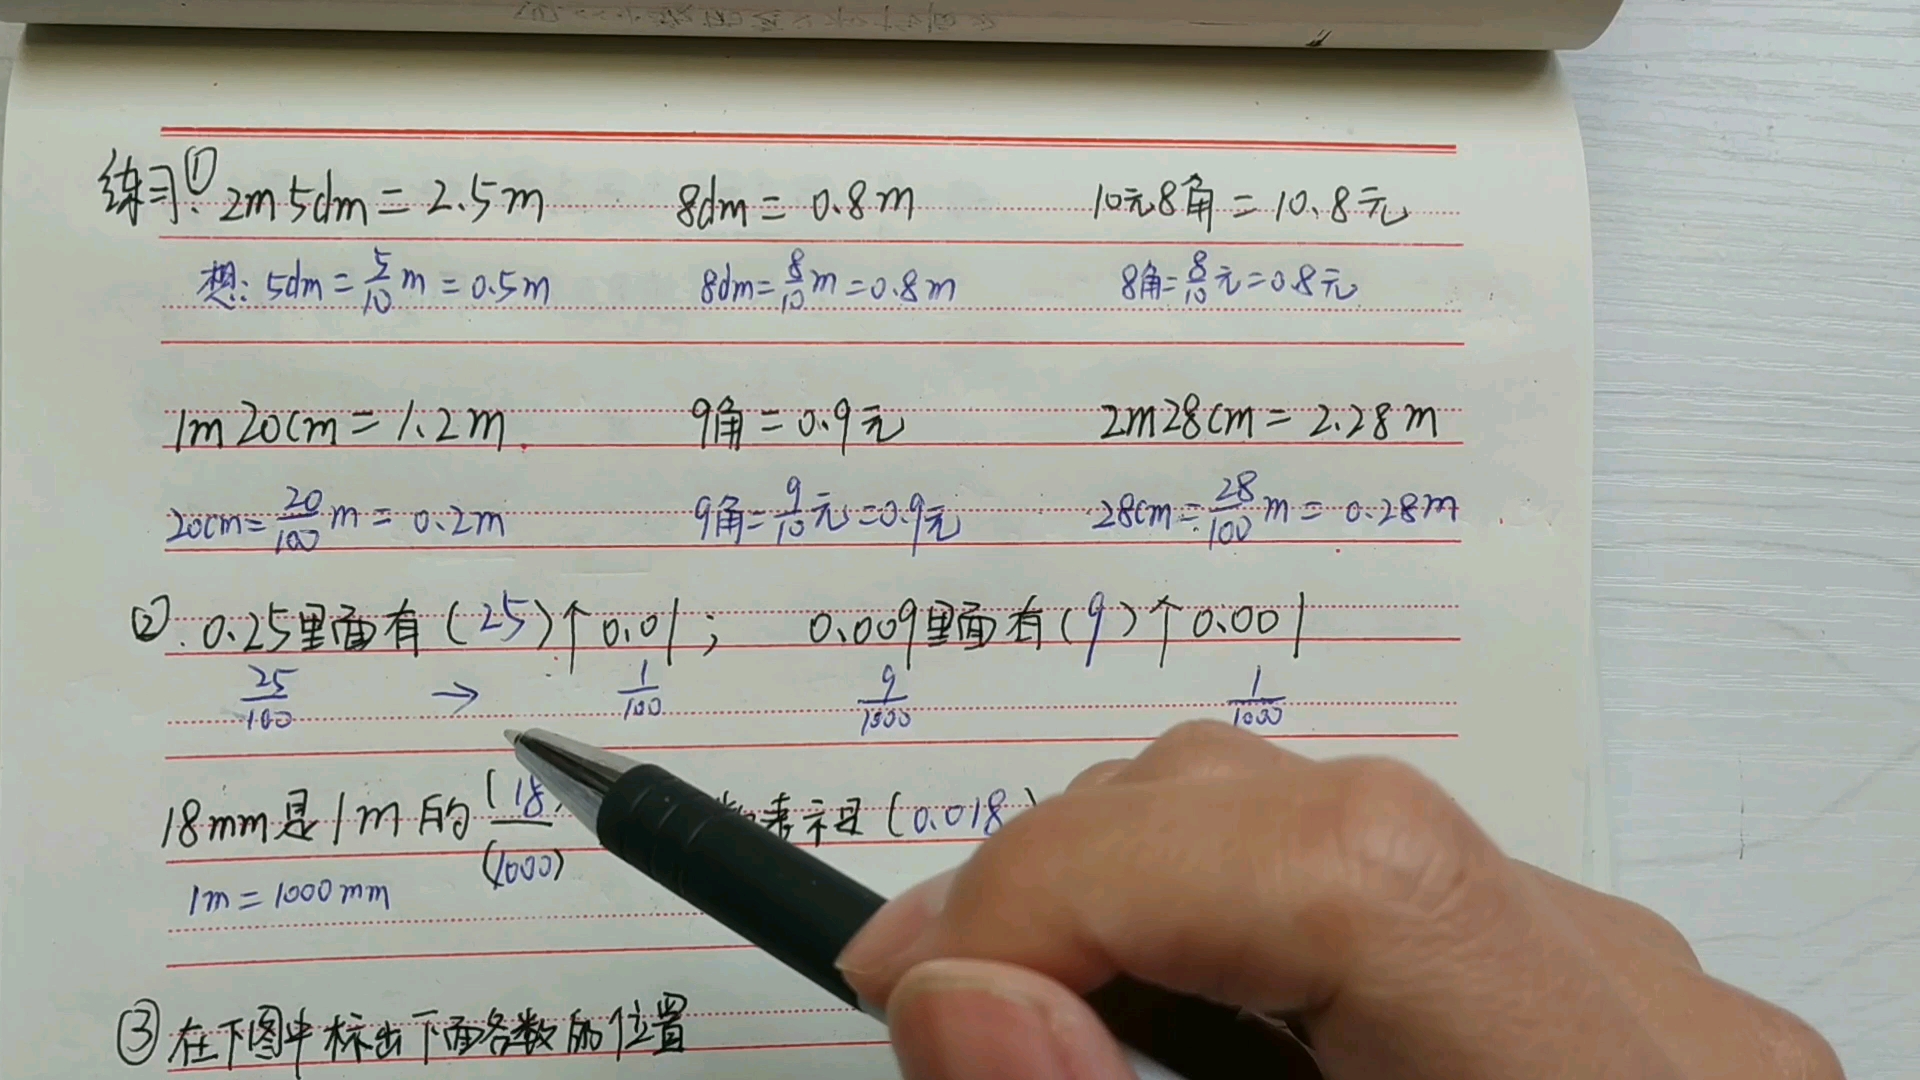 练习:① 2m5dm=2.5m 8dm=0.8m 10元8角=10.8元
想:5dm=5/10m=0.5m 8dm=8/10m=0.8m 8角=8/10元=0.8元
1m20cm=1.2m. 9角=0.9元 2m28cm=2.28m
20cm=20/100m=0.2m 9角=9/10元=0.9元 28cm=28/100m=0.28m
②.0.25里面有(25)个0.01; 0.009里面有(9)个0.001
25/100 → 1/100 9/1000 1/1000
18mm是1m的(18)/(1000) 表示(0.018)
1m=1000mm
③在下图中标出下面各数的位置